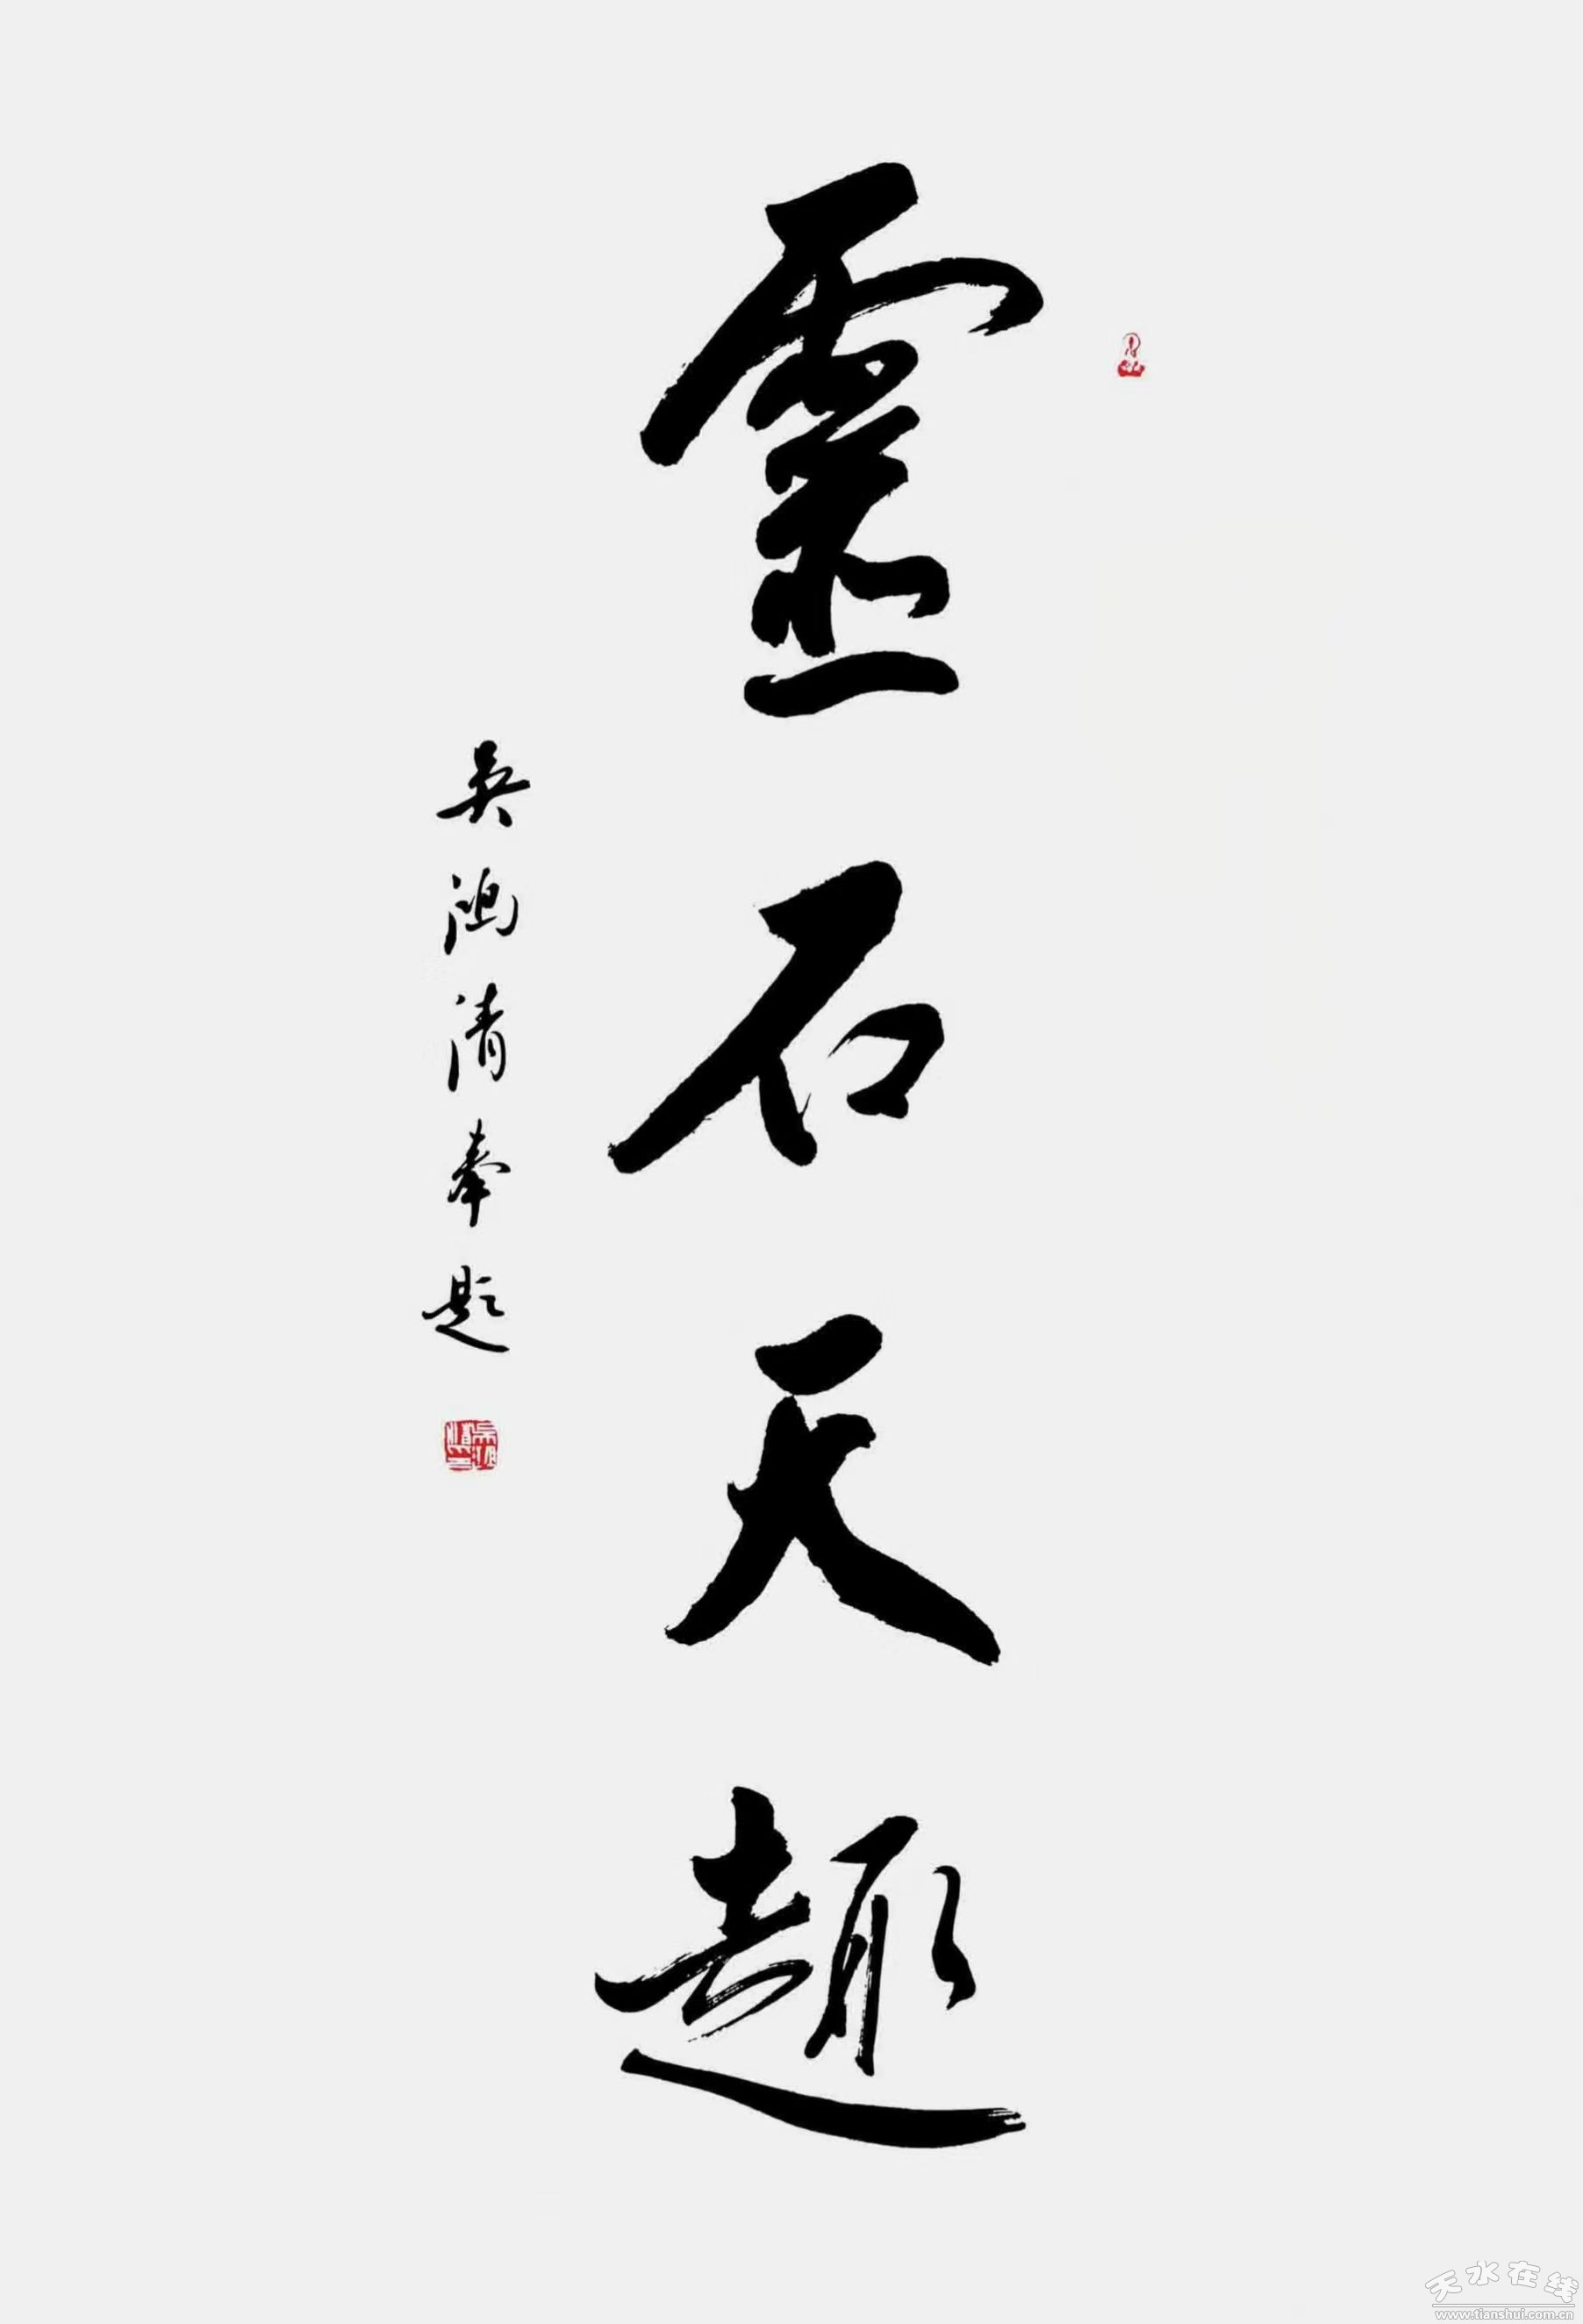 靈石天趣
吴鸿清奉题
天水在线
www.tianshui.com.cn